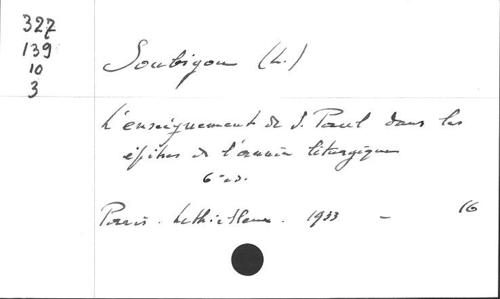 327
139
10
3
Soubigou (L.)
L'enseignement de S. Paul dans les
épitres de l'année liturgique
6e ed.
Paris. Lethielleux. 1933 - 16